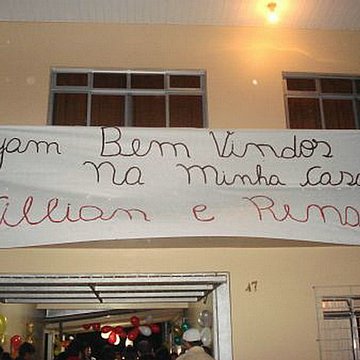 jam Bem Vindos
na minha casa
illian e Rena
17